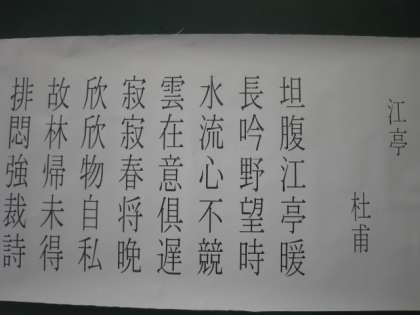 江亭
杜甫
坦腹江亭暖
長吟野望時
水流心不競
雲在意俱遅
寂寂春将晩
欣欣物自私
故林帰未得
排悶強裁詩